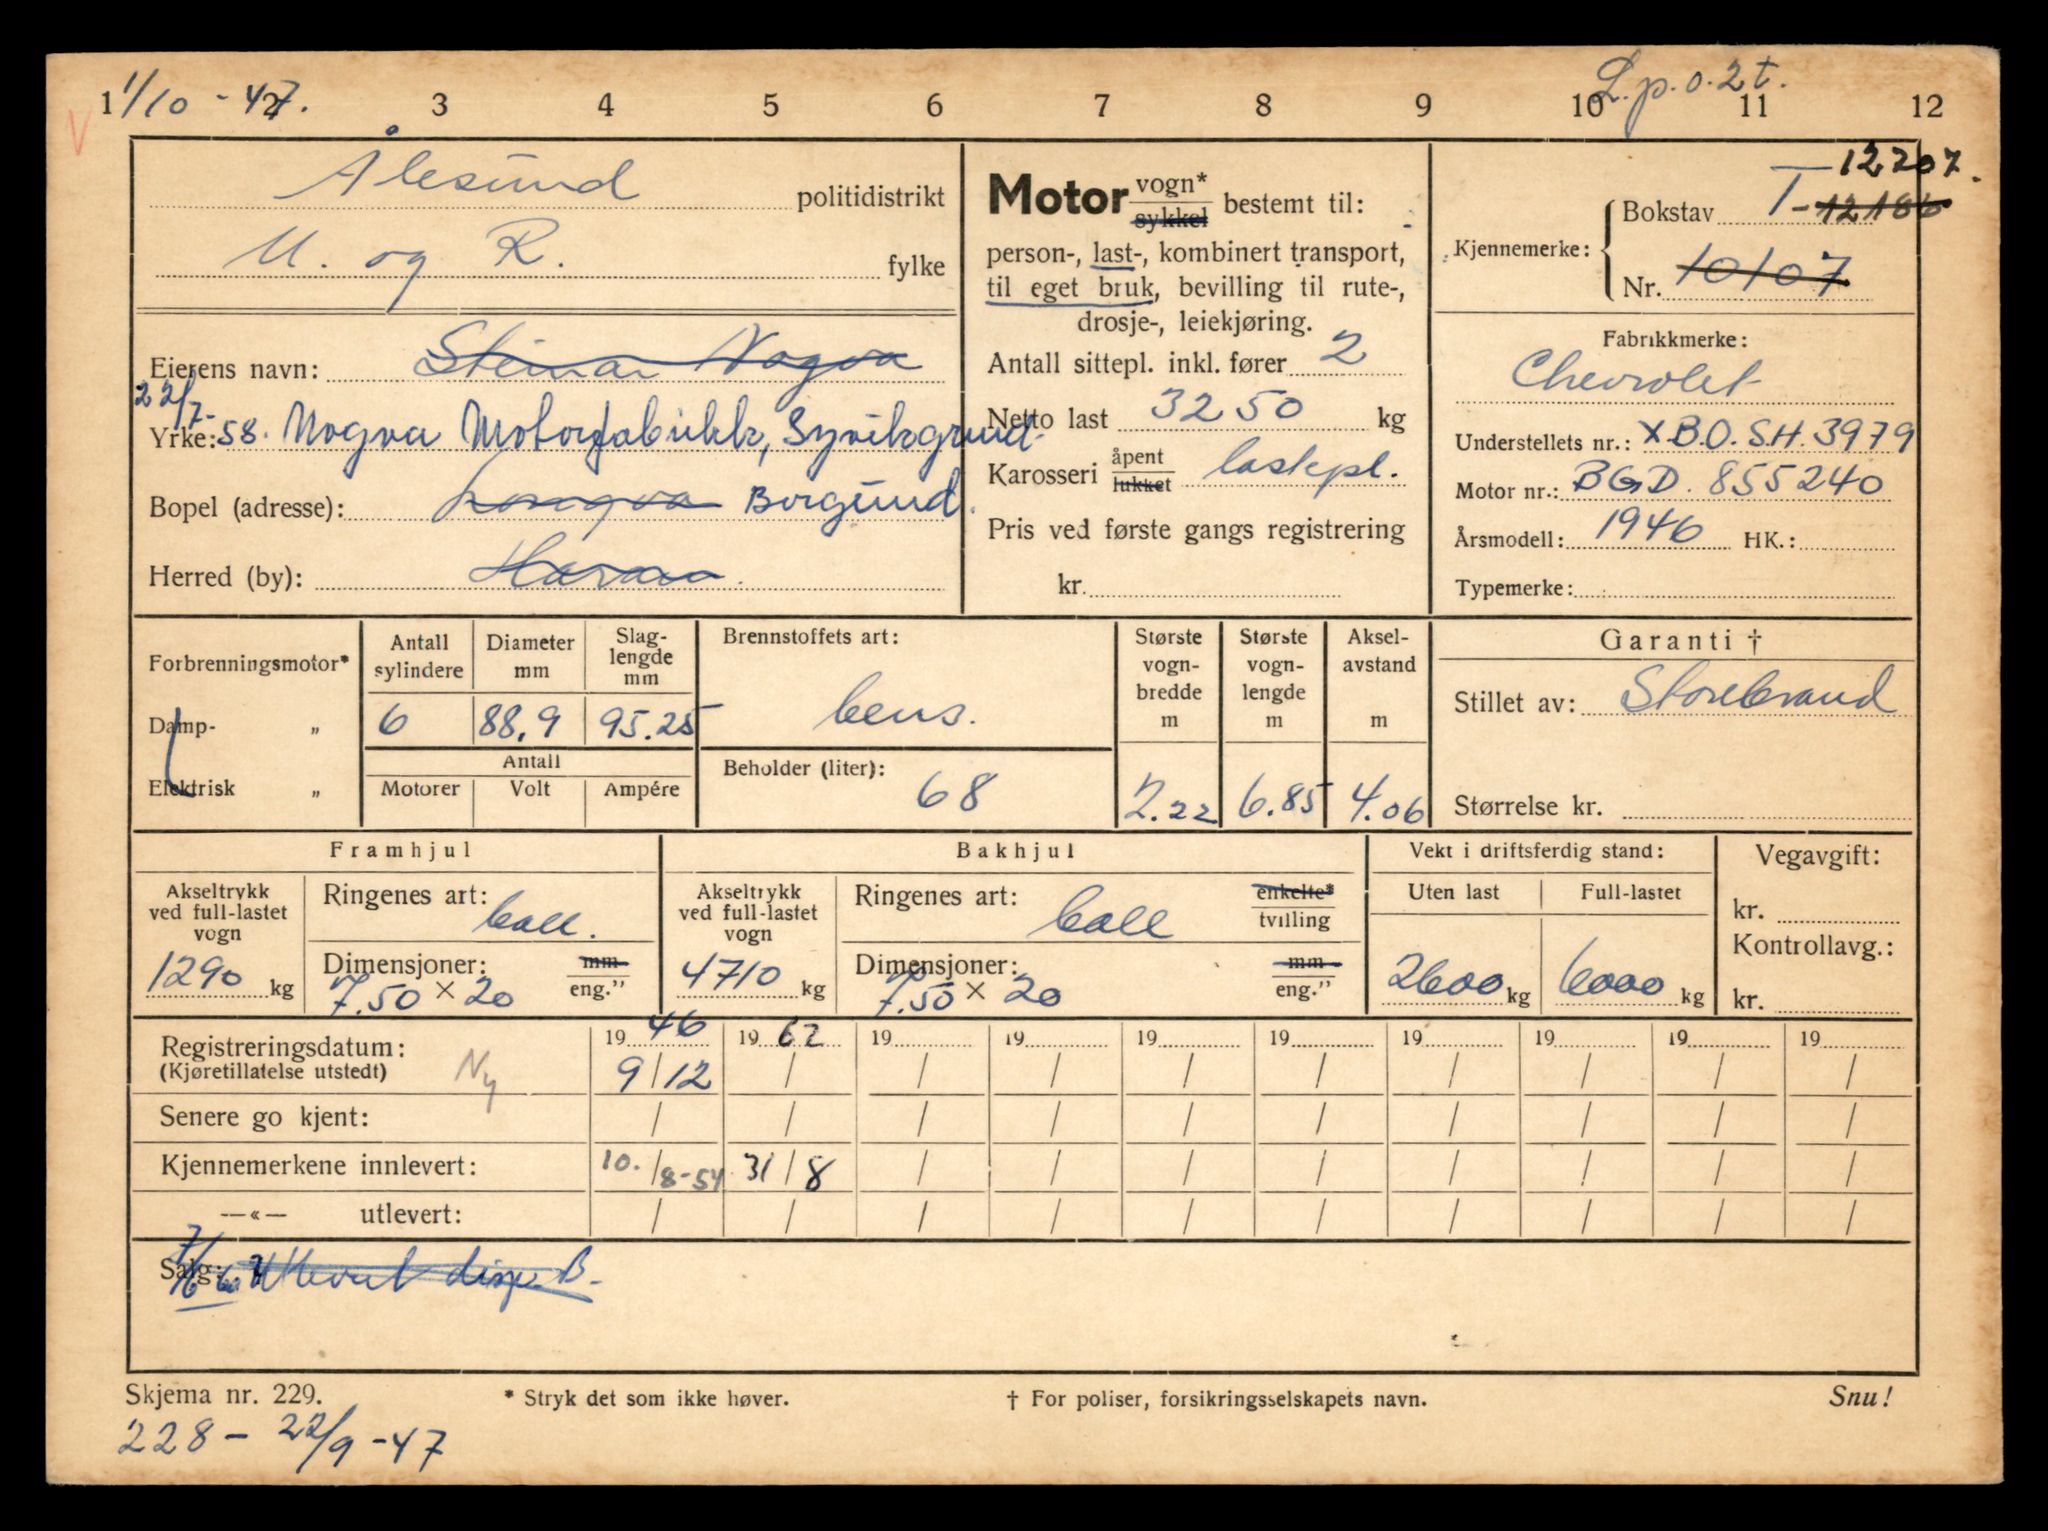 1/10 - 47.
L.p.o.2t.
1 2 3 4 5 6 7 8 9 10 11 12
V
Ålesund politidistrikt
M. og R. fylke
Eierens navn: Steinar Nogva
22/7-
Yrke: 58. Nogva Motorfabrikk, Syvikgrund
Bopel (adresse): Longva Borgund.
Herred (by): Haram.
Motor vogn* sykkel bestemt til:
person-, last-, kombinert transport,
til eget bruk, bevilling til rute-,
drosje-, leiekjøring.
Antall sittepl. inkl. fører 2
Netto last 3250 kg
Karosseri åpent lukket lastepl.
Pris ved første gangs registrering
kr.
12207.
Kjennemerke: Bokstav T-12186
Nr. 10107
Fabrikkmerke:
Chevrolet
Understellets nr.: X.B.O.S.H. 3979
Motor nr.: BGD. 855240
Årsmodell: 1946 HK.:
Typemerke:
Forbrenningsmotor*
Damp- „
Elektrisk „
Antall sylindere Diameter mm Slag-lengde mm
6 88,9 95.25
Antall
Motorer Volt Ampére
Brennstoffets art:
bens.
Beholder (liter):
68
Største vogn-bredde m Største vogn-lengde m Aksel-avstand m
2.22 6.85 4.06
Garanti †
Stillet av: Storebrand
Størrelse kr.
Framhjul
Akseltrykk ved full-lastet vogn
1290 kg
Ringenes art:
ball.
Dimensjoner: mm
7.50 × 20 eng.”
Bakhjul
Akseltrykk ved full-lastet vogn
4710 kg
Ringenes art: enkelte*
ball tvilling
Dimensjoner: mm
7.50 × 20 eng.”
Vekt i driftsferdig stand:
Uten last Full-lastet
2600 kg 6000 kg
Vegavgift:
kr.
Kontrollavg.:
kr.
Registreringsdatum: 19 46 19 62 19 19 19 19 19 19 19 19
(Kjøretillatelse utstedt) Ny 9/12 / / / / / / / / /
Senere go kjent: / / / / / / / / / /
Kjennemerkene innlevert: 10./8-54 31/8 / / / / / / / /
—«— utlevert: / / / / / / / / / /
Salg: 7/6 60 Utlevert disp. B.
Skjema nr. 229. * Stryk det som ikke høver. † For poliser, forsikringsselskapets navn. Snu!
228 - 22/9 - 47